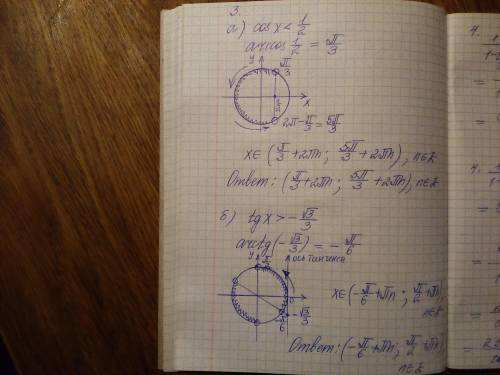 3.
а) cos x < 1/2
arccos 1/2 = π/3
y
π/3
x
2π - π/3 = 5π/3
x∈ (π/3 + 2πn ; 5π/3 + 2πn), n∈Z
Ответ: (π/3 + 2πn ; 5π/3 + 2πn), n∈Z
б) tg x > -√3/3
arctg (-√3/3) = -π/6
y
π/2
ось тангенса
0
-√3/3
-π/6
x∈ (-π/6 + πn ; π/2 + πn)
n∈Z
Ответ: (-π/6 + πn ; π/2 + πn)
n∈Z
4.
4.